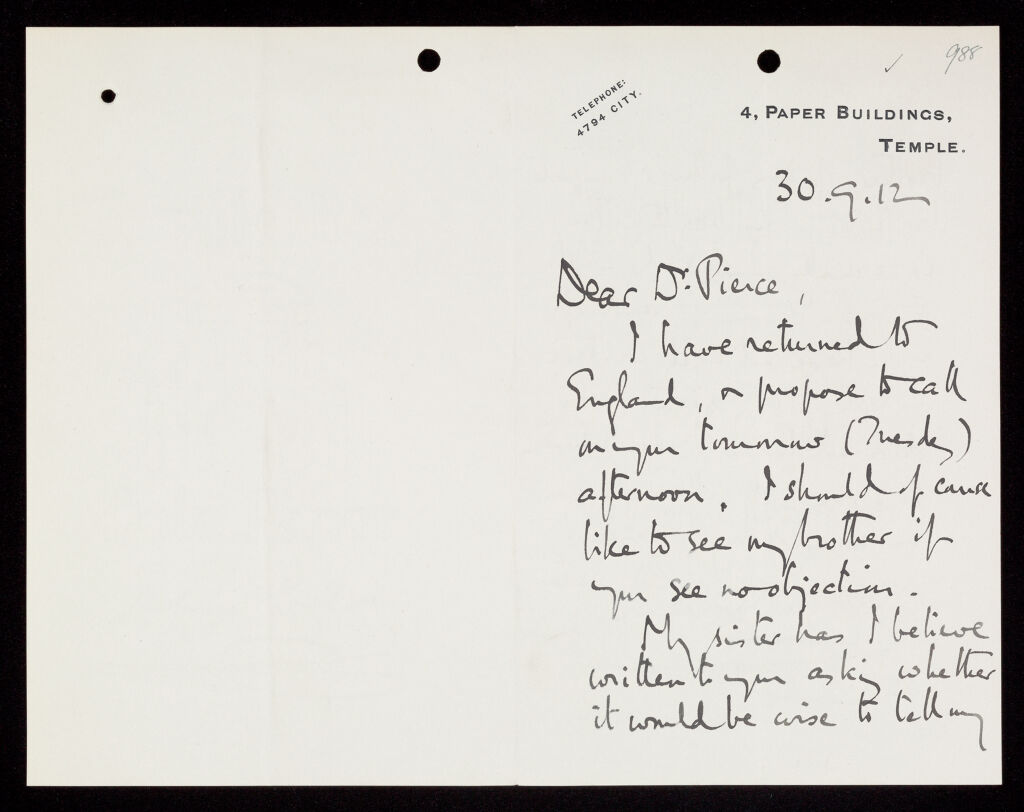 988
TELEPHONE:
4794 CITY.
4, PAPER BUILDINGS,
TEMPLE.
30.9.12
Dear Dr. Pierce,
I have returned to
England, & propose to call
on you tomorrow (Tuesday)
afternoon. I should of course
like to see my brother if
you see no objection.
My sister has I believe
written to you asking whether
it would be wise to tell my